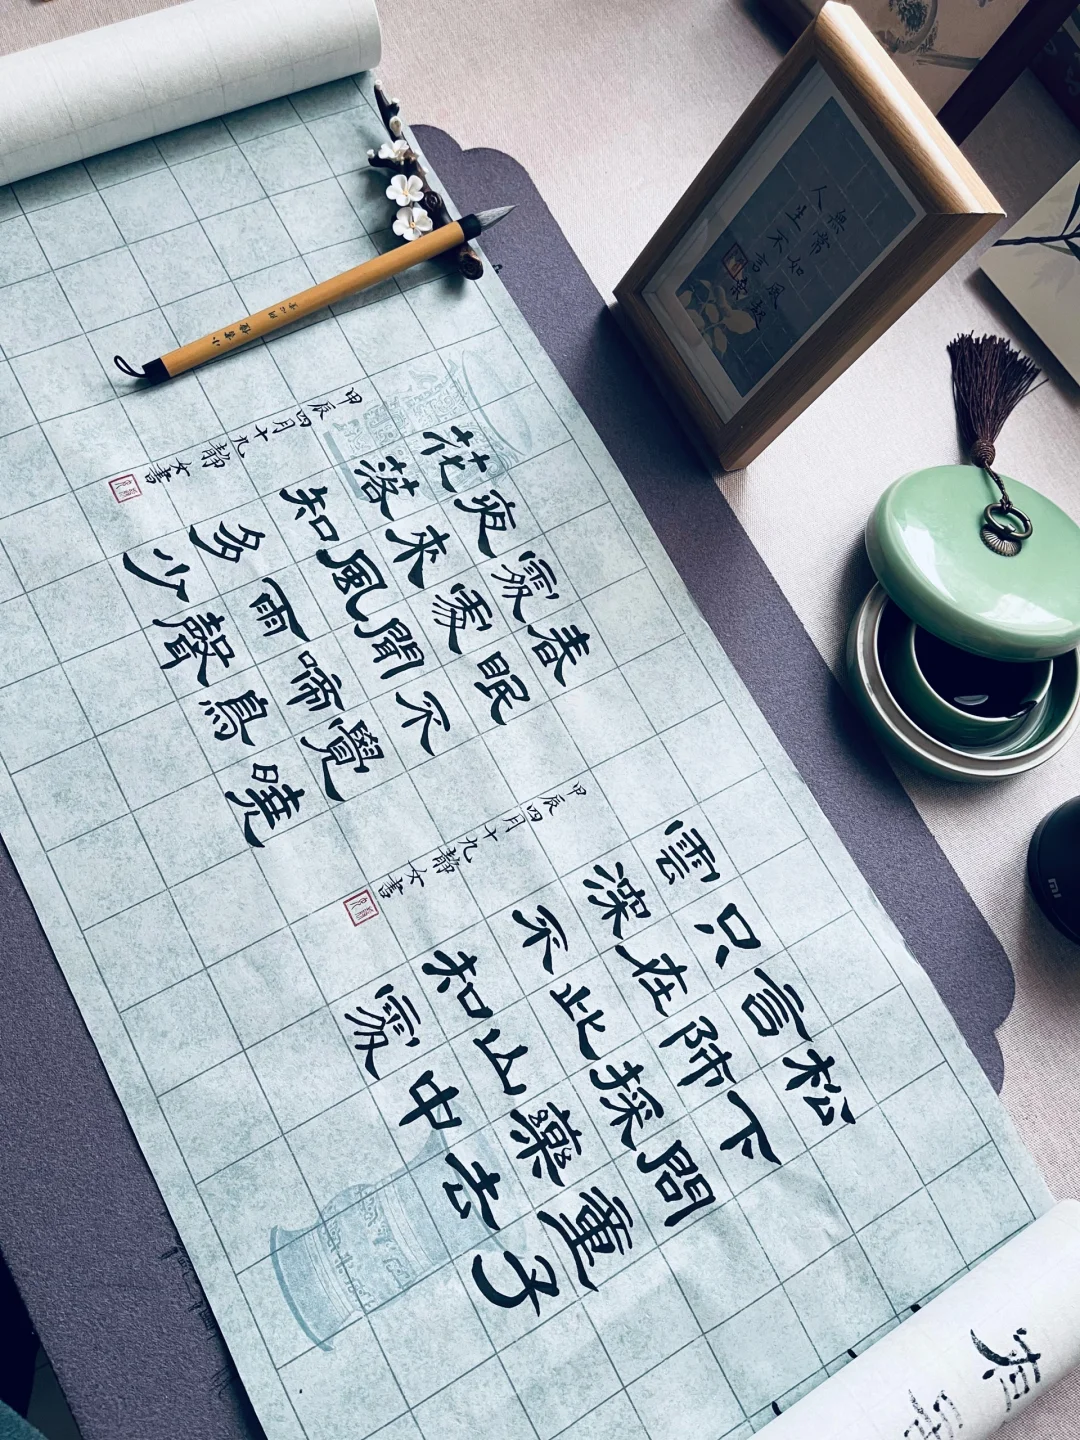 松下問童子
言師採藥去
只在此山中
雲深不知處
甲辰四月十九靜女書
春眠不覺曉
處處聞啼鳥
夜來風雨聲
花落知多少
甲辰四月十九靜女書
無常如風
人生不言
mi